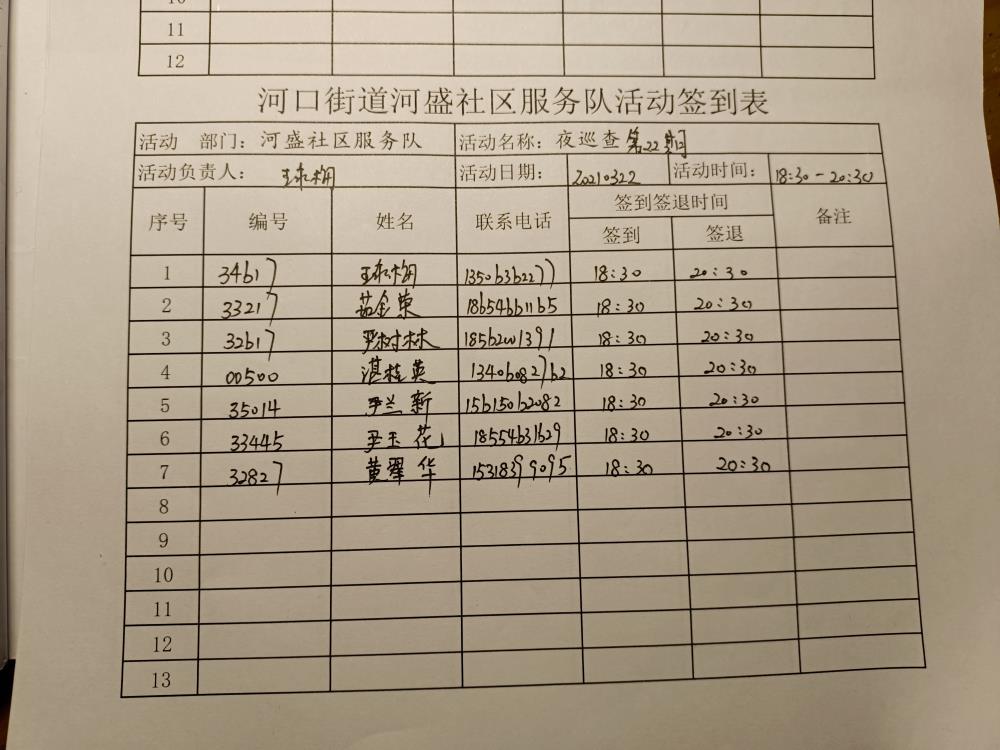 11
12
河口街道河盛社区服务队活动签到表
活动 部门：河盛社区服务队 活动名称：夜巡查第22期
活动负责人： 活动日期：20210322 活动时间：18:30-20:30
序号 编号 姓名 联系电话 签到签退时间 备注
签到 签退
1 34617 13506362277 18:30 20:30
2 33217 茹金荣 18654661165 18:30 20:30
3 32617 尹树林 18562001391 18:30 20:30
4 00500 湛桂英 13406082762 18:30 20:30
5 35014 兰新 15615062082 18:30 20:30
6 33445 尹玉花 18554631629 18:30 20:30
7 32827 黄翠华 15318399095 18:30 20:30
8
9
10
11
12
13